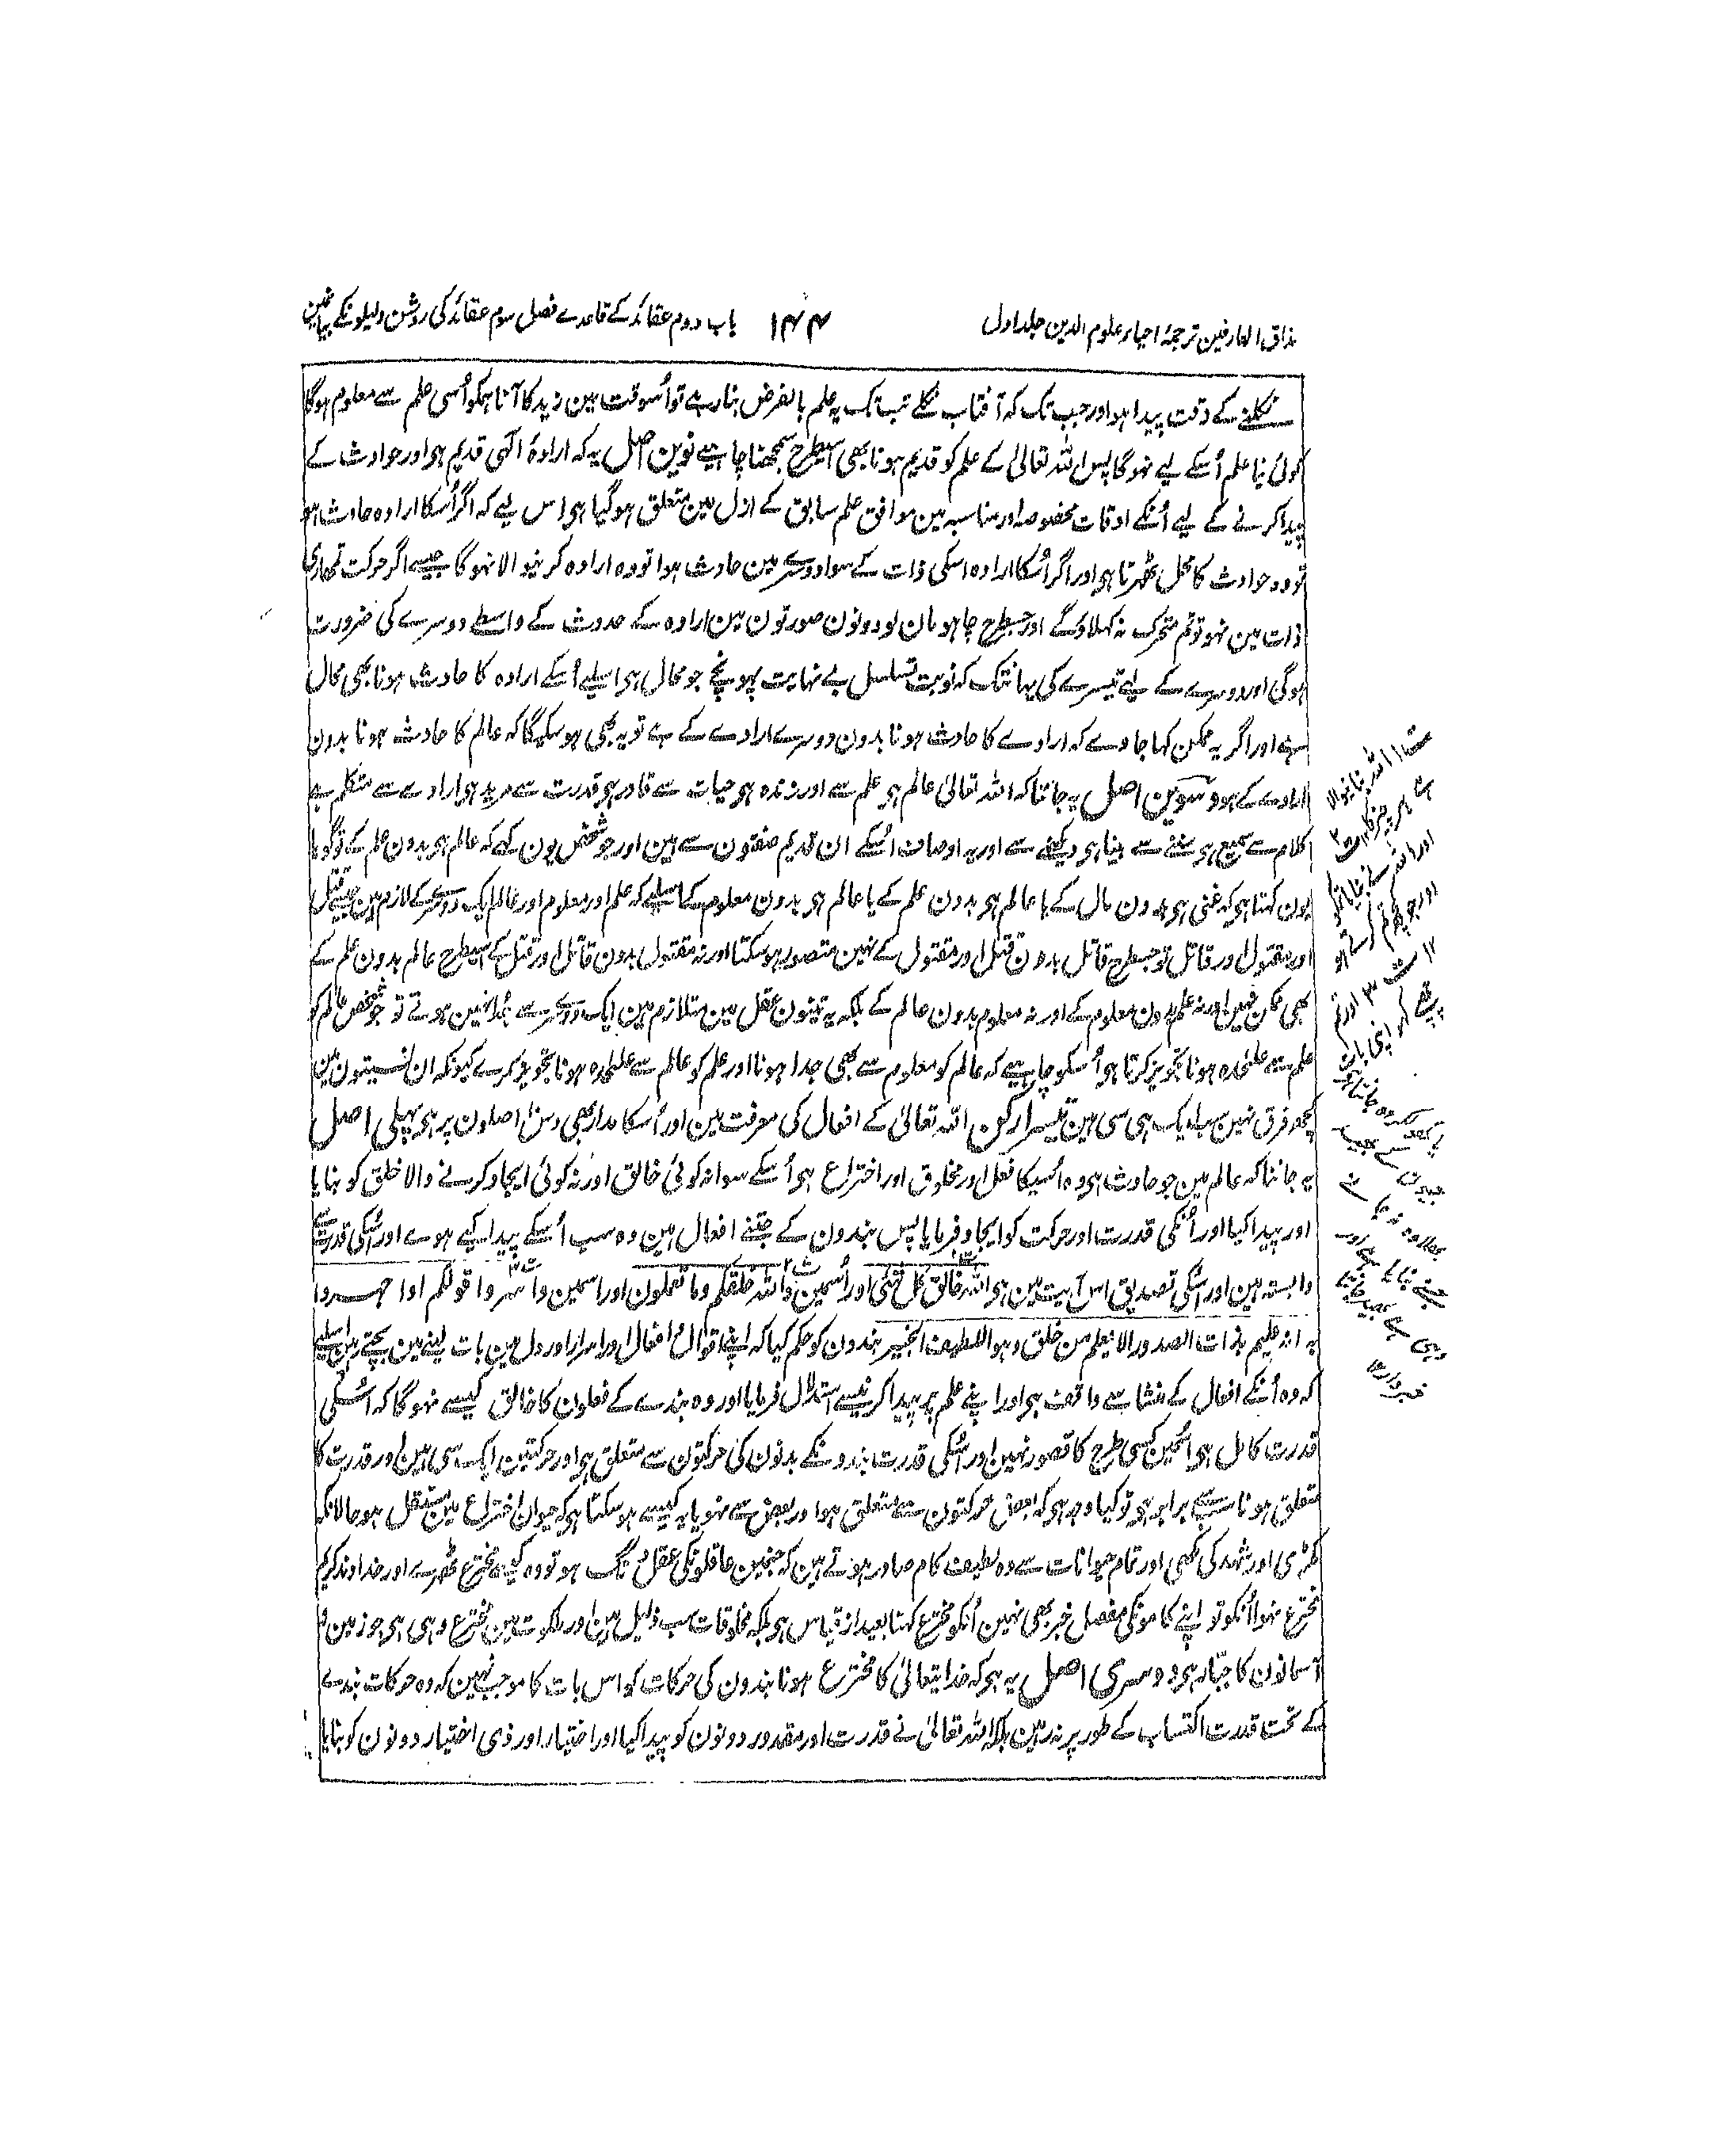 مذاق العارفین ترجمۂ احیاء علوم الدین جلد اول
۱۴۴
باب دوم عقائد کے قاعدے فصل سوم عقائد کی روشن دلیلونکے بیانمین
نکلنے کے وقت پیدا ہو اور جب تک کہ آفتاب نکلے تب تک یہ علم بالفرض بنا رہے تو اُسوقت مین زید کا آنا ہمکو اُسی علم سے معلوم ہوگا
کوئی نیا علم اُسکے لیے نہوگا پس اللہ تعالیٰ کے علم کو قدیم ہونا بھی اسیطرح سمجھنا چاہیے نوین اصل یہ کہ ارادۂ الٰہی قدیم ہی اور حوادث کے
پیدا کرنے کے لیے اُنکے اوقات مخصوصہ اور مناسبہ مین موافق علم سابق کے ازل مین متعلق ہوگیا ہی اس لیے کہ اگر اُسکا ارادہ حادث ہو
تو وہ حوادث کا محل ٹھہرتا ہی اور اگر اُسکا ارادہ اسکی ذات کے سوا دوسرے مین حادث ہوا تو وہ ارادہ کرنیوالا نہوگا جیسے اگر حرکت تمھاری
ذات مین نہو تو تم متحرک نہ کہلاؤگے اور جسطرح چاہو مان لو دونون صورتون مین ارادہ کے حدوث کے واسطے دوسرے کی ضرورت
ہوگی اور دوسرے کے لیے تیسرے کی یہانتک کہ نوبت تسلسل بے نہایت پہونچے جو محال ہی اسلیے اُسکے ارادہ کا حادث ہونا بھی محال
ہے اور اگر یہ ممکن کہا جاوے کہ ارادے کا حادث ہونا بدون دوسرے ارادے کے ہے تو یہ بھی ہوسکیگا کہ عالم کا حادث ہونا بدون
ارادے کے ہو دسوین اصل یہ جاننا کہ اللہ تعالیٰ عالم ہی علم سے اور زندہ ہی حیات سے قادر ہی قدرت سے مرید ہی ارادے سے متکلم ہے
کلام سے سمیع ہی سننے سے بینا ہی دیکھنے سے اور یہ اوصاف اُسکے ان قدیم صفتون سے ہین اور جو شخص یون کہے کہ عالم ہی بدون علم کے تو گویا
یون کہتا ہی کہ غنی ہی بدون مال کے یا عالم ہی بدون علم کے یا عالم ہی بدون معلوم کے اسلیے کہ علم اور معلوم اور عالم ایک دوسرے کے لازم ہین جیسے قتل
اور مقتول اور قاتل تو جسطرح قاتل بدون قتل اور مقتول کے نہین متصور ہوسکتا اور نہ مقتول بدون قاتل اور قتل کے اسیطرح عالم بدون علم کے
بھی ممکن نہین اور نہ علم بدون معلوم کے اور نہ معلوم بدون عالم کے بلکہ یہ تینون عقل مین متلازم ہین ایک دوسرے سے جُدا نہین ہوتے تو جو شخص عالم کو
علم سے علٰحدہ ہونا تجویز کرتا ہی اُسکو چاہیے کہ عالم کو معلوم سے بھی جدا ہونا اور علم کو عالم سے علٰحدہ ہونا تجویز کرے کیونکہ ان نسبتون مین
کچھ فرق نہین سب ایک ہی سی ہین تیسرا رکن اللہ تعالیٰ کے افعال کی معرفت مین اور اُسکا مدار بھی دس اصلون پر ہی پہلی اصل
یہ جاننا کہ عالم مین جو حادث ہی وہ اُسیکا فعل اور مخلوق اور اختراع ہی اُسکے سوا نہ کوئی خالق اور نہ کوئی ایجاد کرنے والا خلق کو بنایا
اور پیدا کیا اور اُنکی قدرت اور حرکت کو ایجاد فرمایا پس بندون کے جتنے افعال ہین وہ سب اُسکے پیدا کیے ہوے اور اُسکی قدرت سے
وابستہ ہین اور اسکی تصدیق اس آیت مین ہی اللہ خالق کل شئی اور اُسمین واللہ خلقکم وما تعملون اور اسمین واسروا قولکم اوا جہروا
بہ انہ علیم بذات الصدور الا یعلم من خلق وہو اللطیف الخبیر بندون کو حکم کیا کہ اپنے اقوال افعال اور اسرار اور دل مین بات لینے مین بچتے رہین اسلیے
کہ وہ اُنکے افعال کے منشا سے واقف ہی اور اپنے علم پر پیدا کرنیسے استدلال فرمایا اور وہ بندے کے فعلون کا خالق کیسے نہوگا کہ اُسکی
قدرت کامل ہی اسمین کسی طرح کا قصور نہین اور اُسکی قدرت بندونکے بدنون کی حرکتون سے متعلق ہی اور حرکتین ایک سی ہین اور قدرت کا
متعلق ہونا سب سے برابر ہی تو کیا وجہ ہی کہ بعض حرکتون سے متعلق ہو اور بعض سے نہو یا یہ کیسے ہوسکتا ہی کہ حیوان اختراع مین مستقل ہو حالانکہ
مکڑی اور شہد کی مکھی اور تمام حیوانات سے وہ لطیف کام صادر ہوتے ہین کہ جنمین عاقلونکی عقل دنگ ہو تو وہ کیسے مخترع ٹھہرے اور خداوند کریم
مخترع نہوا اُنکو تو اپنے کامونکی مفصل خبر بھی نہین اُنکو مخترع کہنا بعید از قیاس ہی بلکہ مخلوقات سب ذلیل ہین اور ملکوت مین مخترع وہی ہی جو زمین و
آسمانون کا جبّار ہی دوسری اصل یہ ہی کہ خدا یتعالیٰ کا مخترع ہونا بندون کی حرکات کو اس بات کا موجب نہین کہ وہ حرکات بندے
کے تحت قدرت اکتساب کے طور پر نہ رہین بلکہ اللہ تعالیٰ نے قدرت اور مقدور دونون کو پیدا کیا اور اختیار اور ذی اختیار دونون کو بنایا
ت ۱ اللہ بنانیوالا
ہے ہر چیز کا ت ۲
اور اللہ نے بنایا تمکو
اور جو تم کرتے ہو
۱۲ ت ۳ اور تم
چھپے کہو اپنی بات
یا کھولکر وہ جانتا ہے
جیون کے بھید
بھلا وہ نہ جانے
جسنے بنایا ہے اور
وہی ہے بھید جانتا
خبردار ۱۲